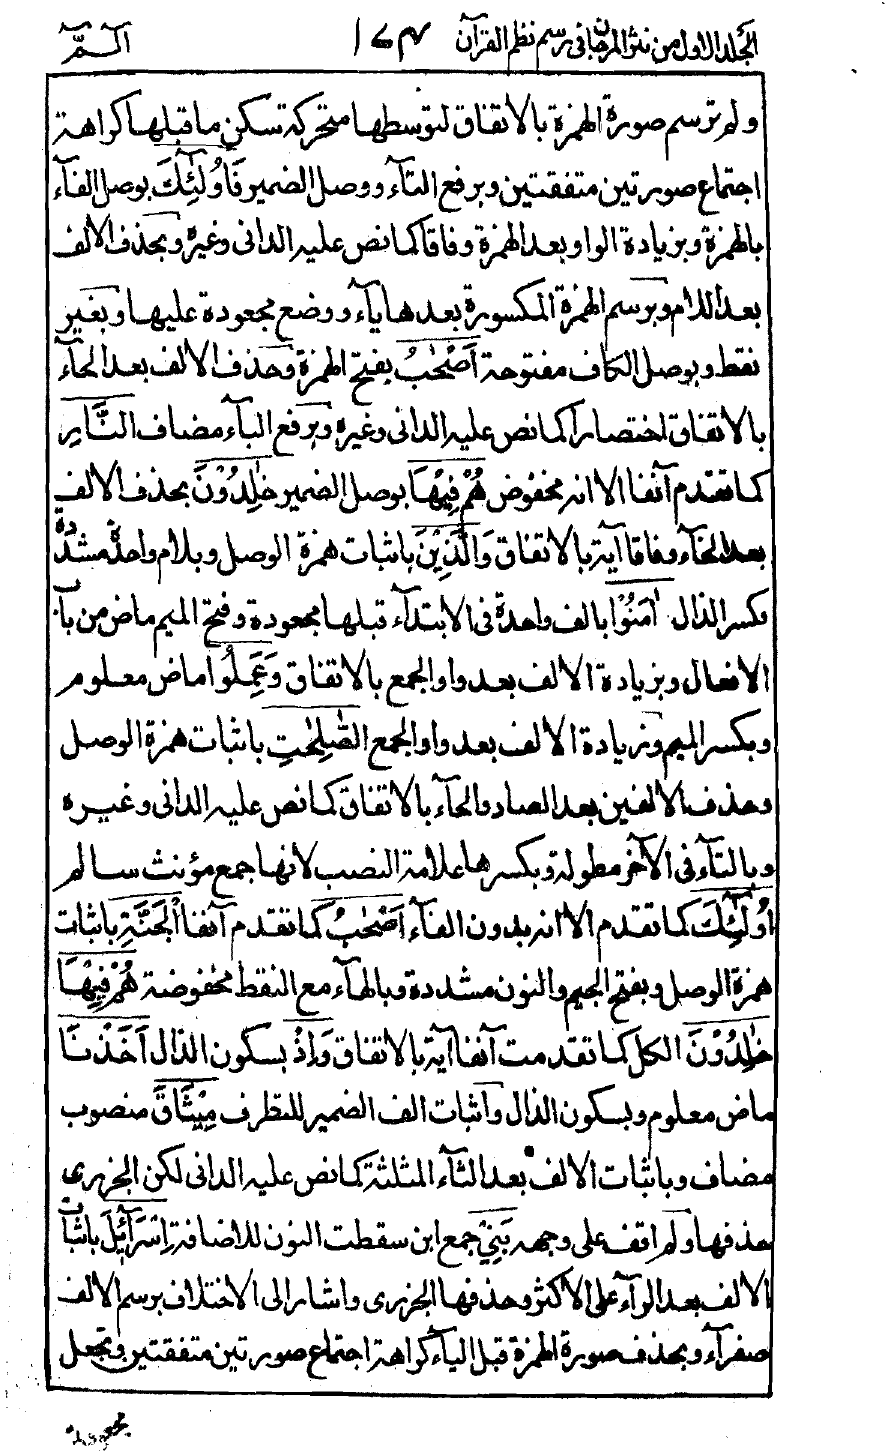 الجلد الاول من نثر المرجان فى رسم نظم القرآن ١٧٤ الٓــمّٓ
ولم ترسم صورة الهمزة بالاتفاق لتوسطها متحركة تسكن ماقبلها كراهة
اجتماع صورتين متفقتين وبرفع التآء ووصل الضمير فَاُولٰٓئِكَ بوصل الفآء
بالهمزة وبزيادة الواو بعد الهمزة وفاقا كما نص عليه الدانى وغيره وبحذف الالف
بعد اللام وبرسم الهمزة المكسورة بعدها يآء ووضع مجعودة عليها وبغير
نقط وبوصل الكاف مفتوحة اَصْحٰبُ بفتح الهمزة وحذف الالف بعد الحآء
بالاتفاق اختصارا كما نص عليه الدانى وغيره وبرفع البآء مضاف النَّارِ
كما تقدم آنفا الا انه مخفوض هُمْ فِيْهَا بوصل الضمير خٰلِدُوْنَ بحذف الالف
بعد الخآء وفاقا آية بالاتفاق وَالَّذِيْنَ باثبات همزة الوصل وبلام واحدة مشددة
وكسر الذال اٰمَنُوْا بالف واحدة فى الابتدآء قبلها مجعودة وفتح الميم ماض من باب
الافعال وبزيادة الالف بعد واو الجمع بالاتفاق وَعَمِلُوا ماض معلوم
وبكسر الميم وبزيادة الالف بعد واو الجمع الصّٰلِحٰتِ باثبات همزة الوصل
وحذف الالفين بعد الصاد والحآء بالاتفاق كما نص عليه الدانى وغيره
وبالتآء فى الآخر مطولة وبكسرها علامة النصب لانها جمع مؤنث سالم
اُولٰٓئِكَ كما تقدم الا انه بدون الفآء اَصْحٰبُ كما تقدم آنفا الْجَنَّةِ باثبات
همزة الوصل وبفتح الجيم والنون مشددة وبالهآء مع النقط مخفوضة هُمْ فِيْهَا
خٰلِدُوْنَ الكل كما تقدمت آنفا آية بالاتفاق وَاِذْ بسكون الذال اَخَذْنَا
ماض معلوم وبسكون الذال واثبات الف الضمير للتطرف مِيْثَاقَ منصوب
مضاف وباثبات الالف بعد الثآء المثلثة كما نص عليه الدانى لكن الجزرى
حذفها ولم اقف على وجهه بَنِيْ جمع ابن سقطت النون للاضافة اِسْرَآئِيْلَ باثبات
الالف بعد الرآء على الاكثر وحذفها الجزرى واشار الى الاختلاف برسم الالف
صفرآء وبحذف صورة الهمزة قبل اليآء كراهة اجتماع صورتين متفقتين وتجعل
مجعودة